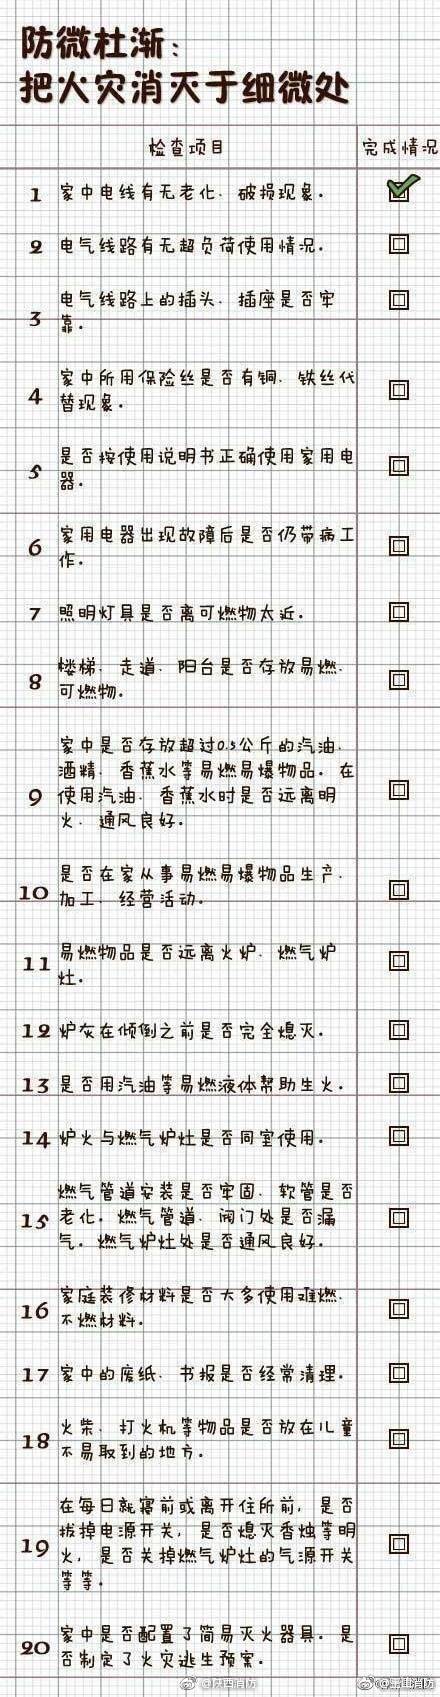 防微杜渐：
把火灾消灭于细微处
检查项目 完成情况
1 家中电线有无老化、破损现象。
2 电气线路有无超负荷使用情况。
3 电气线路上的插头、插座是否牢
靠。
4 家中所用保险丝是否有铜、铁丝代
替现象。
5 是否按使用说明书正确使用家用电
器。
6 家用电器出现故障后是否仍带病工
作。
7 照明灯具是否离可燃物太近。
8 楼梯、走道、阳台是否存放易燃、
可燃物。
9 家中是否存放超过0.5公斤的汽油、
酒精、香蕉水等易燃易爆物品。在
使用汽油、香蕉水时是否远离明
火、通风良好。
10 是否在家从事易燃易爆物品生产、
加工、经营活动。
11 易燃物品是否远离火炉、燃气炉
灶。
12 炉灰在倾倒之前是否完全熄灭。
13 是否用汽油等易燃液体帮助生火。
14 炉火与燃气炉灶是否同室使用。
15 燃气管道安装是否牢固、软管是否
老化。燃气管道、阀门处是否漏
气。燃气炉灶处是否通风良好。
16 家庭装修材料是否大多使用难燃、
不燃材料。
17 家中的废纸、书报是否经常清理。
18 火柴、打火机等物品是否放在儿童
不易取到的地方。
19 在每日就寝前或离开住所前，是否
拔掉电源开关，是否熄灭香烛等明
火，是否关掉燃气炉灶的气源开关
等等。
20 家中是否配置了简易灭火器具。是
否制定了火灾逃生预案。
@陕西消防